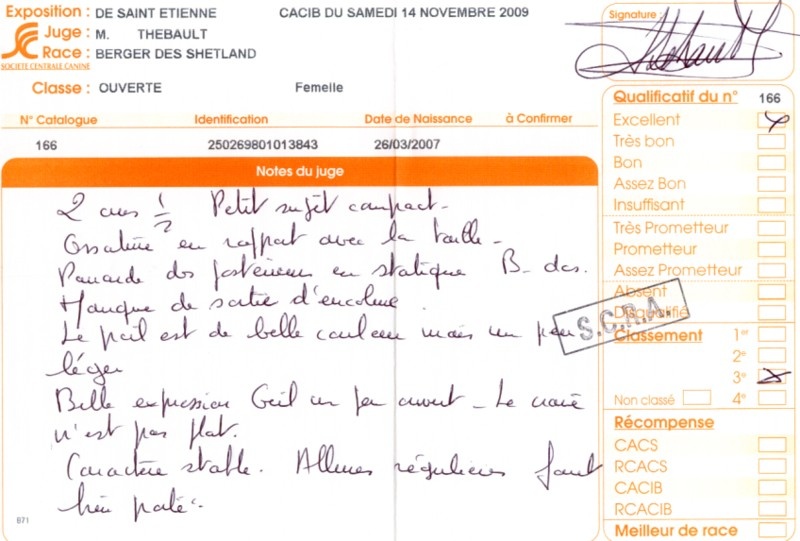 Exposition : DE SAINT ETIENNE CACIB DU SAMEDI 14 NOVEMBRE 2009
Juge : M. THEBAULT
Race : BERGER DES SHETLAND
SOCIETE CENTRALE CANINE
Classe : OUVERTE Femelle
N° Catalogue Identification Date de Naissance à Confirmer
166 250269801013843 26/03/2007
Notes du juge
2 ans 1/2 Petit sujet compact -
Ossature en rapport avec la taille -
Panarde des postérieurs en statique B. dos.
Manque de sortie d'encolure.
Le poil est de belle couleur mais un peu
léger
Belle expression Oeil un peu ouvert - Le crane
n'est pas plat.
Caractère stable. Allures régulières fouet
bien porté.
B71
Signature :
Qualificatif du n° 166
Excellent
Très bon
Bon
Assez Bon
Insuffisant
Très Prometteur
Prometteur
Assez Prometteur
Absent
Disqualifié
S.C.R.A.
Classement 1er
2e
3e
Non classé 4e
Récompense
CACS
RCACS
CACIB
RCACIB
Meilleur de race